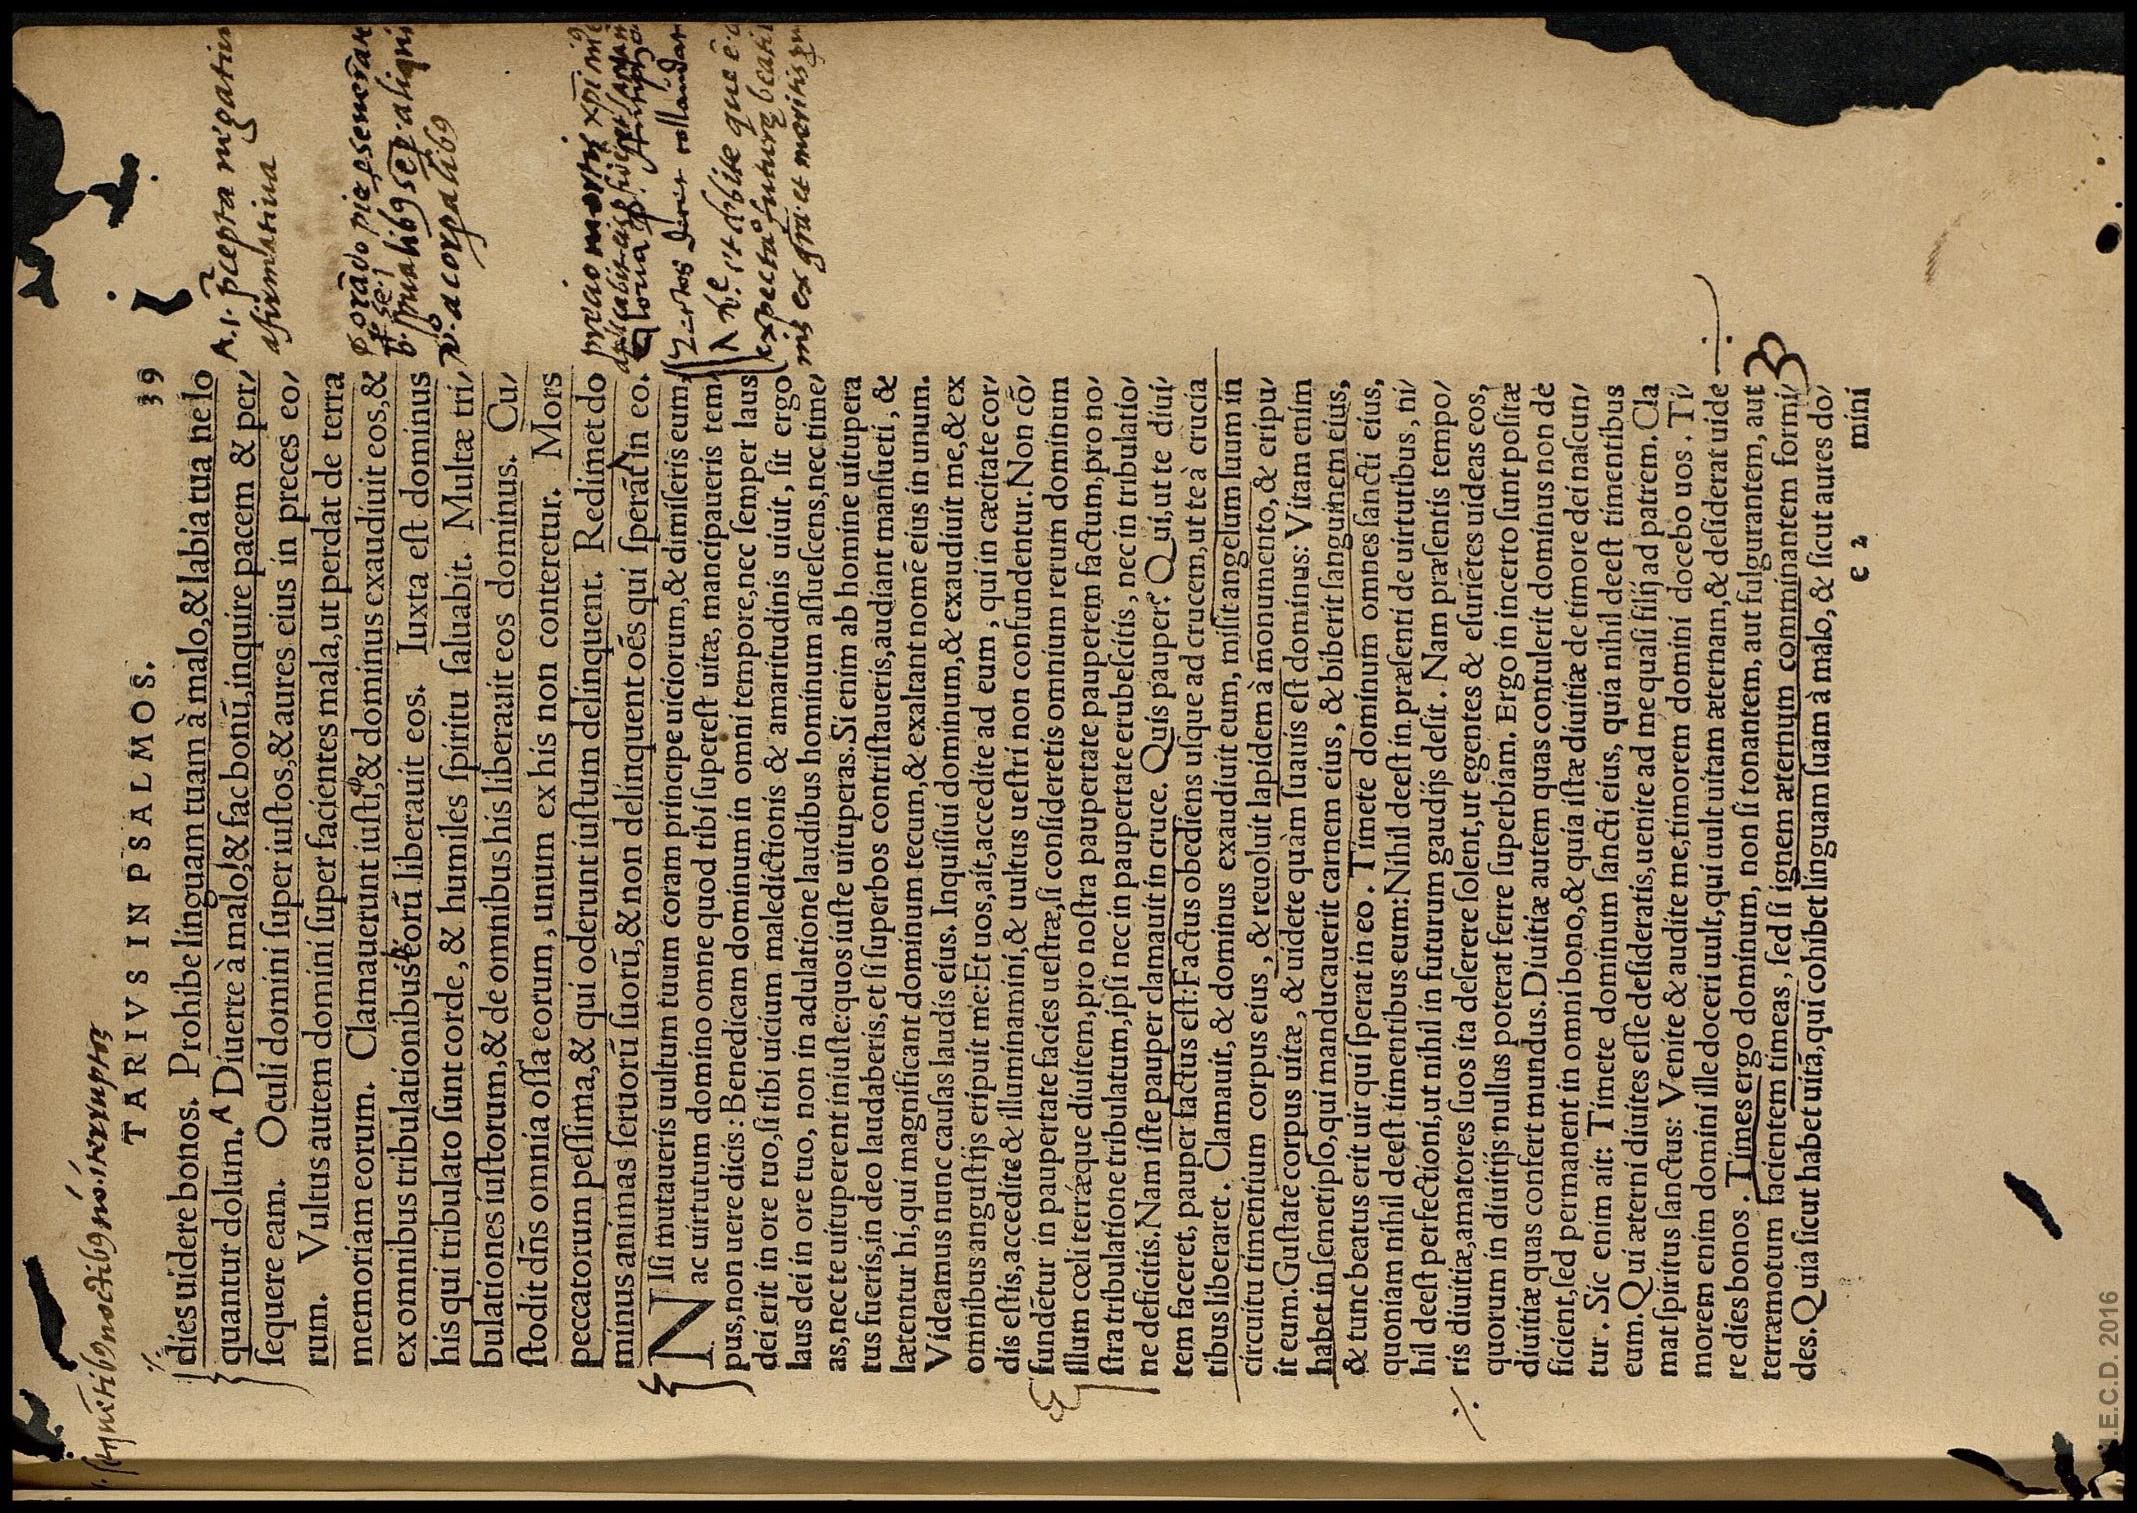 TARIVS IN PSALMOS. 39
dies uidere bonos. Prohibe linguam tuam à malo, & labia tua ne lo
quantur dolum. A Diuerte à malo, & fac bonū, inquire pacem & per/
sequere eam. Oculi domini super iustos, & aures eius in preces eo/
rum. Vultus autem domini super facientes mala, ut perdat de terra
memoriam eorum. Clamauerunt iusti, & dominus exaudiuit eos, &
ex omnibus tribulationibus eorū liberauit eos. Iuxta est dominus
his qui tribulato sunt corde, & humiles spiritu saluabit. Multæ tri/
bulationes iustorum, & de omnibus his liberauit eos dominus. Cu/
stodit dñs omnia ossa eorum, unum ex his non conteretur. Mors
peccatorum pessima, & qui oderunt iustum delinquent. Redimet do
minus animas seruorū suorū, & non delinquent oēs qui sperāt in eo.
NIsi mutaueris uultum tuum coram principe uiciorum, & dimiseris eum,
ac uirtutum domino omne quod tibi superest uitæ, mancipaueris tem/
pus, non uere dicis: Benedicam dominum in omni tempore, nec semper laus
dei erit in ore tuo, si tibi uicium maledictionis & amaritudinis uiuit, sit ergo
laus dei in ore tuo, non in adulatione laudibus hominum assuescens, nec time/
as, nec te uituperent iniuste: quos iuste uituperas. Si enim ab homine uitupera
tus fueris, in deo laudaberis, et si superbos contristaueris, audiant mansueti, &
lætentur hi, qui magnificant dominum tecum, & exaltant nomē eius in unum.
Videamus nunc causas laudis eius. Inquisiui dominum, & exaudiuit me, & ex
omnibus angustijs eripuit me: Et uos, ait, accedite ad eum, qui in cæcitate cor/
dis estis, accedite & illuminamini, & uultus uestri non confundentur. Non cō/
fundētur in paupertate facies uestræ, si consideretis omnium rerum dominum
illum cœli terræque diuitem, pro nostra paupertate pauperem factum, pro no/
stra tribulatione tribulatum, ipsi nec in paupertate erubescitis, nec in tribulatio/
ne deficitis. Nam iste pauper clamauit in cruce. Quis pauper? Qui, ut te diui/
tem faceret, pauper factus est: Factus obediens usque ad crucem, ut te à crucia
tibus liberaret. Clamauit, & dominus exaudiuit eum, misit angelum suum in
circuitu timentium corpus eius, & reuoluit lapidem à monumento, & eripu/
it eum. Gustate corpus uitæ, & uidete quàm suauis est dominus: Vitam enim
habet in semetipso, qui manducauerit carnem eius, & biberit sanguinem eius,
& tunc beatus erit uir qui sperat in eo. Timete dominum omnes sancti eius,
quoniam nihil deest timentibus eum: Nihil deest in præsenti de uirtutibus, ni/
hil deest perfectioni, ut nihil in futurum gaudijs desit. Nam præsentis tempo/
ris diuitiæ, amatores suos ita deserere solent, ut egentes & esuriētes uideas eos,
quorum in diuitijs nullus poterat ferre superbiam. Ergo in incerto sunt positæ
diuitiæ quas confert mundus. Diuitiæ autem quas contulerit dominus non de
ficient, sed permanent in omni bono, & quia istæ diuitiæ de timore dei nascun/
tur. Sic enim ait: Timete dominum sancti eius, quia nihil deest timentibus
eum. Qui æterni diuites esse desideratis, uenite ad me quasi filij ad patrem. Cla
mat spiritus sanctus: Venite & audite me, timorem domini docebo uos. Ti/
morem enim domini ille doceri uult, qui uult uitam æternam, & desiderat uide
re dies bonos. Times ergo dominum, non si tonantem, aut fulgurantem, aut
terræmotum facientem timeas, sed si ignem æternum comminantem formi/
des. Quia sicut habet uitā, qui cohibet linguam suam à malo, & sicut aures do/
e 2 mini
A. i. p̄cepta nigatiu
afirmatiua
v. a corpalib9
precio mortis xp̄i
expecta futurę beati
ex gr̄a et meritis
I.E.C.D. 2016